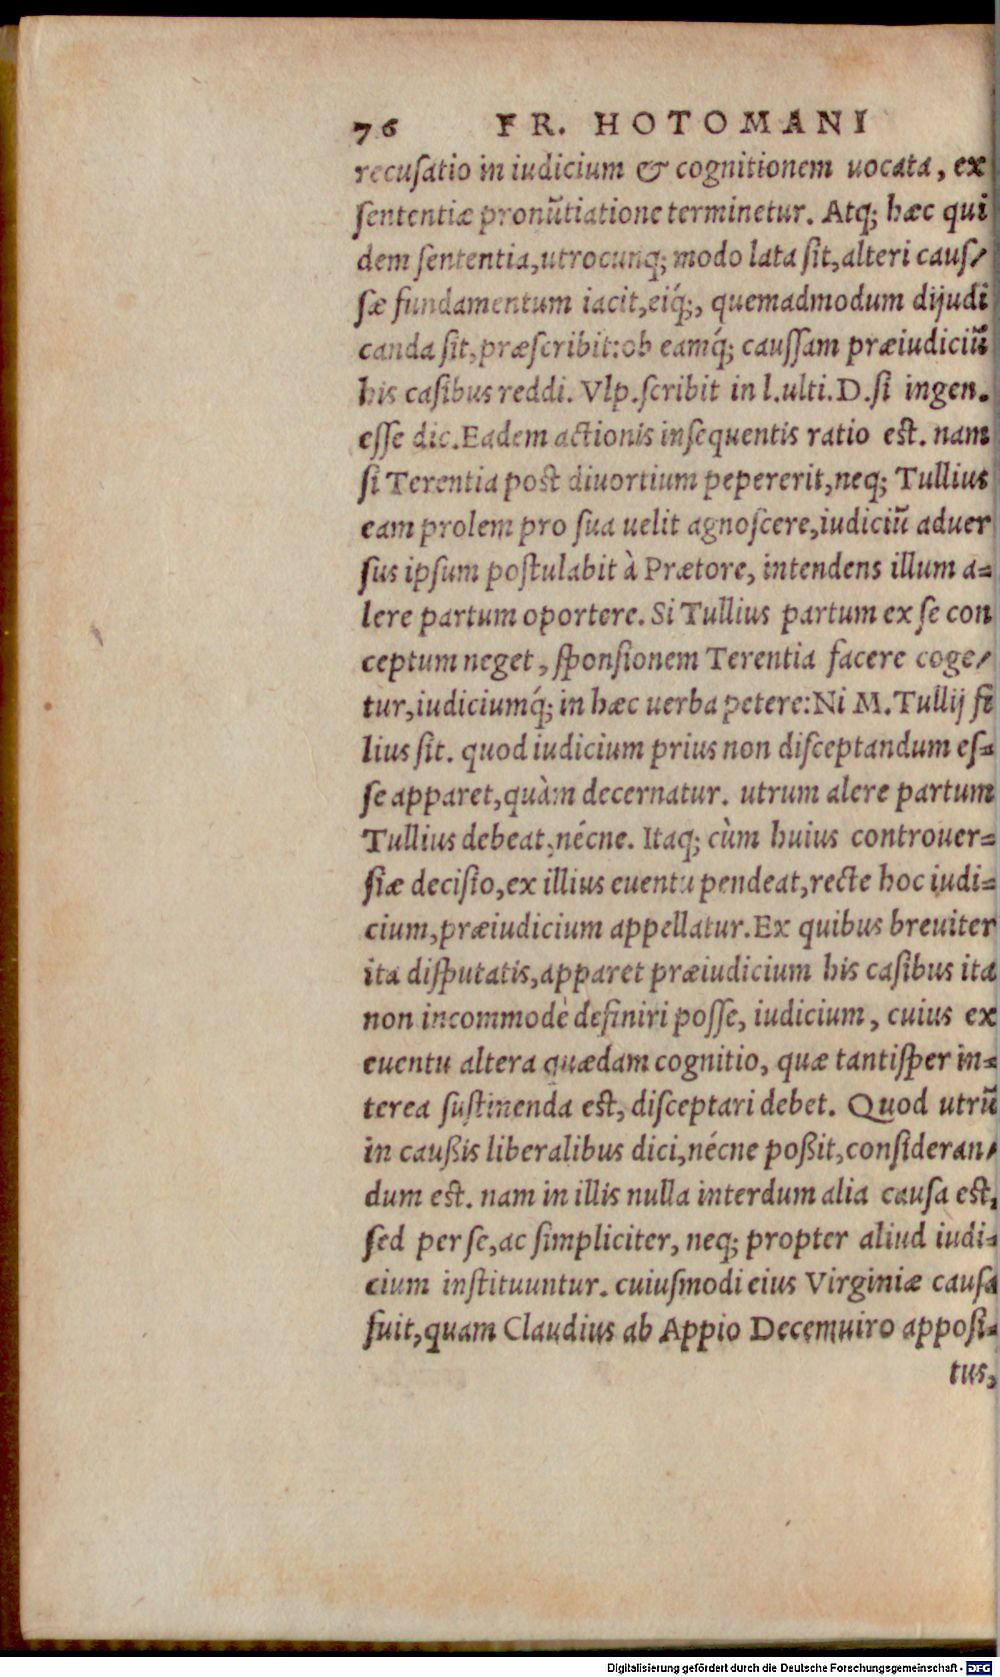 76 FR. HOTOMANI
recuſatio in iudicium & cognitionem uocata, ex
ſententiæ pronũtiatione terminetur. Atq; hæc qui
dem ſententia, utrocunq; modo lata ſit, alteri cauſ/
ſæ fundamentum iacit, eiq́;, quemadmodum dijudi
canda ſit, præſcribit: ob eamq́; cauſſam præiudiciũ
his caſibus reddi. Vlp. ſcribit in l. ulti. D. ſi ingen.
eſſe dic. Eadem actionis inſequentis ratio eſt. nam
ſi Terentia poſt diuortium pepererit, neq; Tullius
eam prolem pro ſua uelit agnoſcere, iudiciũ aduer
ſus ipſum poſtulabit à Prætore, intendens illum a-
lere partum oportere. Si Tullius partum ex ſe con
ceptum neget, ſponſionem Terentia facere coge/
tur, iudiciumq́; in hæc uerba petere: Ni M. Tullij fi
lius ſit. quod iudicium prius non diſceptandum eſ-
ſe apparet, quàm decernatur. utrum alere partum
Tullius debeat, nécne. Itaq; cùm huius controuer-
ſiæ deciſio, ex illius euentu pendeat, recte hoc iudi-
cium, præiudicium appellatur. Ex quibus breuiter
ita diſputatis, apparet præiudicium his caſibus ita
non incommodè definiri poſſe, iudicium, cuius ex
euentu altera quædam cognitio, quæ tantiſper in-
terea ſuſtinenda eſt, diſceptari debet. Quod utrũ
in caußis liberalibus dici, nécne poßit, conſideran/
dum eſt. nam in illis nulla interdum alia cauſa eſt,
ſed per ſe, ac ſimpliciter, neq; propter aliud iudi-
cium inſtituuntur. cuiuſmodi eius Virginiæ cauſa
fuit, quam Claudius ab Appio Decemuiro appoſi-
tus,
Digitalisierung gefördert durch die Deutsche Forschungsgemeinschaft - DFG